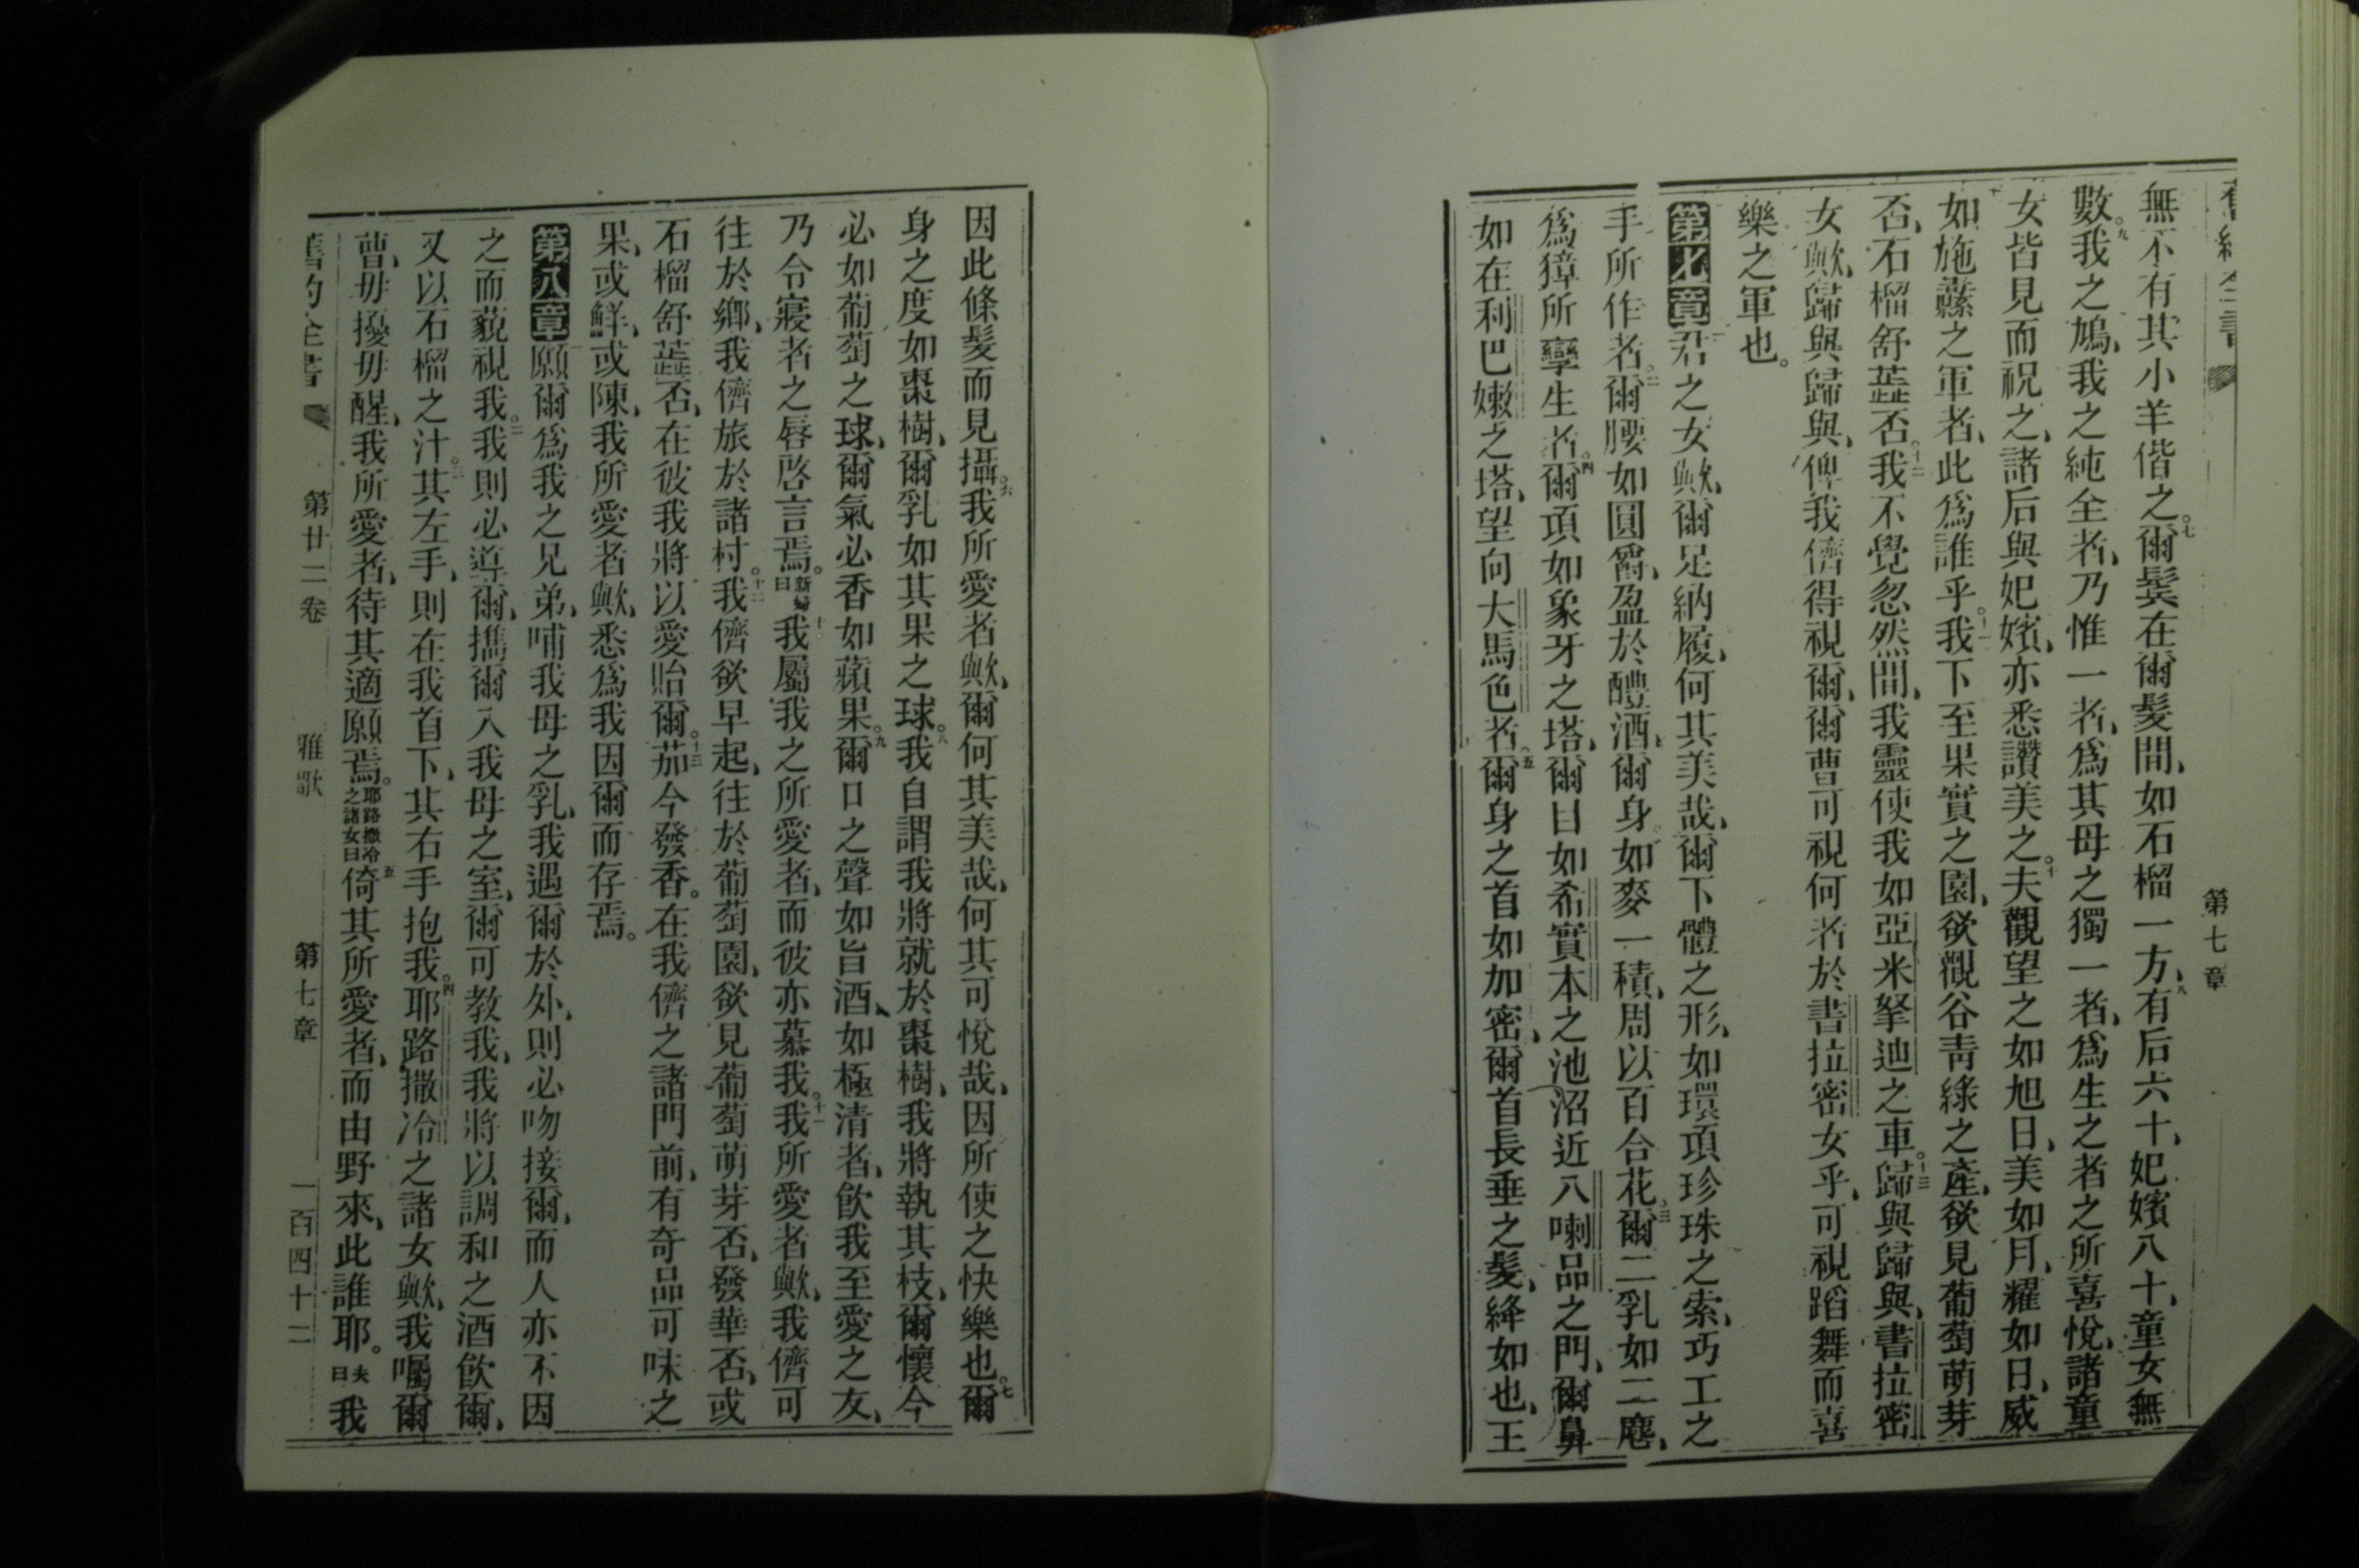 第七章
無不有其小羊偕之。七爾鬂在爾髮間、如石榴一方、八有后六十、妃嬪八十、童女無
數。九我之鳩、我之純全者、乃惟一者、爲其母之獨一者、爲生之者之所喜悅、諸童
女皆見而祝之、諸后與妃嬪、亦悉讚美之。十夫觀望之如旭日、美如月、耀如日、威
如施纛之軍者、此爲誰乎。十一我下至果實之園、欲觀谷靑綠之產、欲見葡萄萌芽
否、石榴舒蕋否。十二我不覺忽然間、我靈使我如亞米拏迪之車。十三歸與歸與、書拉密
女歟、歸與歸與、俾我儕得視爾、爾曹可視何者於書拉密女乎、可視蹈舞而喜
樂之軍也。
第七章一君之女歟、爾足納履、何其美哉、爾下體之形、如環項珍珠之索、巧工之
手所作者。二爾腰如圓龠、盈於醴酒、爾身如麥一積、周以百合花。三爾二乳如二麀、
爲獐所孿生者。四爾項如象牙之塔、爾目如希實本之池沼近八喇品之門、爾鼻
如在利巴嫩之塔、望向大馬色者。五爾身之首如加密、爾首長垂之髮、絳如也、王
因此條髮而見攝。六我所愛者歟、爾何其美哉、何其可悅哉、因所使之快樂也。七爾
身之度如棗樹、爾乳如其果之球。八我自謂我將就於棗樹、我將執其枝、爾懷今
必如葡萄之球、爾氣必香如蘋果。九爾口之聲如旨酒、如極清者、飮我至愛之友、
乃令寢者之唇啓言焉。新婦曰十我屬我之所愛者、而彼亦慕我。十一我所愛者歟、我儕可
往於鄉、我儕旅於諸村。十二我儕欲早起、往於葡萄園、欲見葡萄萌芽否、發華否、或
石榴舒蕋否、在彼我將以愛貽爾。十三茄今發香。在我儕之諸門前、有奇品可味之
果、或鮮、或陳、我所愛者歟、悉爲我因爾而存焉。
第八章一願爾爲我之兄弟、哺我母之乳、我遇爾於外、則必吻接爾、而人亦不因
之而藐視我。二我則必導爾、攜爾入我母之室、爾可教我、我將以調和之酒飮爾、
又以石榴之汁。三其左手、則在我首下、其右手抱我。四耶路撒冷之諸女歟、我囑爾
曹、毋擾毋醒、我所愛者、待其適願焉。耶路撒冷之諸女曰五倚其所愛者、而由野來、此誰耶。夫曰我
第廿二卷　雅歌　第七章　一百四十二